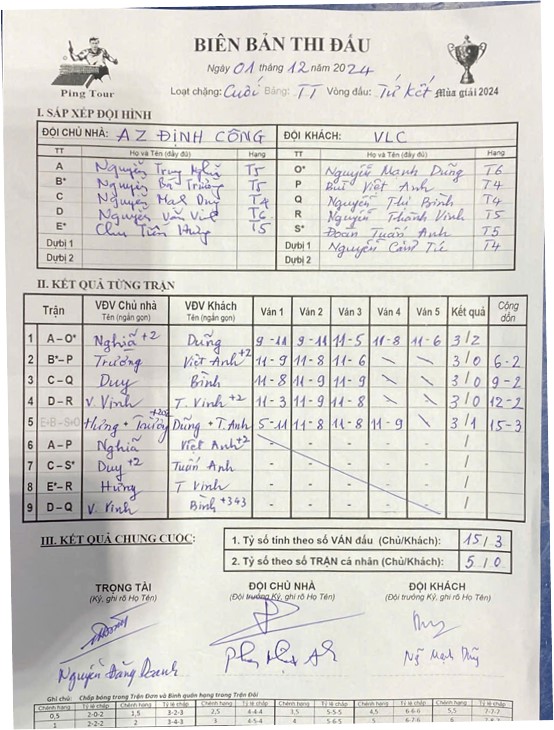 Ping Tour
BIÊN BẢN THI ĐẤU
Ngày 01 tháng 12 năm 2024
Loạt chặng: Cuối Bảng: TT Vòng đấu: Tứ kết Mùa giải 2024
I. SẮP XẾP ĐỘI HÌNH
ĐỘI CHỦ NHÀ: AZ ĐỊNH CÔNG ĐỘI KHÁCH: VLC
TT Họ và Tên (đầy đủ) Hạng TT Họ và Tên (đầy đủ) Hạng
A Nguyễn Trung Nghĩa T5 O* Nguyễn Mạnh Dũng T6
B* Nguyễn Bá Trường T5 P Bùi Việt Anh T4
C Nguyễn Duy T4 Q Nguyễn Thị Bình T4
D Nguyễn Văn Vinh T6 R Nguyễn Thành Vinh T5
E* Chu Tiến Hưng T5 S* Đoàn Tuấn Anh T5
Dự bị 1 Dự bị 1 Nguyễn Cẩm Tú T4
Dự bị 2 Dự bị 2
II. KẾT QUẢ TỪNG TRẬN
Trận VĐV Chủ nhà VĐV Khách Ván 1 Ván 2 Ván 3 Ván 4 Ván 5 Kết quả Cộng dồn
Tên (ngắn gọn) Tên (ngắn gọn)
1 A – O* Nghĩa +2 Dũng 9 - 11 9 - 11 11 - 5 11 - 8 11 - 6 3 / 2
2 B* – P Trường Việt Anh +2 11 - 9 11 - 8 11 - 6 3 / 0 6 - 2
3 C – Q Duy Bình 11 - 8 11 - 9 11 - 8 3 / 0 9 - 2
4 D – R V. Vinh T. Vinh +2 11 - 3 11 - 9 11 - 9 3 / 0 12 - 2
5 E+B - S+O Hưng + Trường Dũng + T. Anh 5 - 11 11 - 8 11 - 8 11 - 9 3 / 1 15 - 3
6 A – P Nghĩa Việt Anh +2 - - - - - /
7 C – S* Duy +2 Tuấn Anh - - - - - /
8 E* – R Hưng T Vinh - - - - - /
9 D – Q V. Vinh Bình +343 - - - - - /
III. KẾT QUẢ CHUNG CUỘC:
1. Tỷ số tính theo số VÁN đấu (Chủ/Khách): 15 / 3
2. Tỷ số theo số TRẬN cá nhân (Chủ/Khách): 5 / 0
TRỌNG TÀI ĐỘI CHỦ NHÀ ĐỘI KHÁCH
(Ký, ghi rõ Họ Tên) (Đội trưởng Ký, ghi rõ Họ Tên) (Đội trưởng Ký, ghi rõ Họ Tên)
Nguyễn Đăng Doanh
Ghi chú: Chấp bóng trong Trận Đơn và Bình quân hạng trong Trận Đôi
Chênh hạng Tỷ lệ chấp Chênh hạng Tỷ lệ chấp Chênh hạng Tỷ lệ chấp Chênh hạng Tỷ lệ chấp Chênh hạng Tỷ lệ chấp Chênh hạng Tỷ lệ chấp
0,5 2-0-2 1,5 3-2-3 2,5 4-4-4 3,5 5-5-5 4,5 6-6-6 5,5 7-7-7
1 2-2-2 2 3-4-3 3 4-5-4 4 5-6-5 5 6-7-6 6